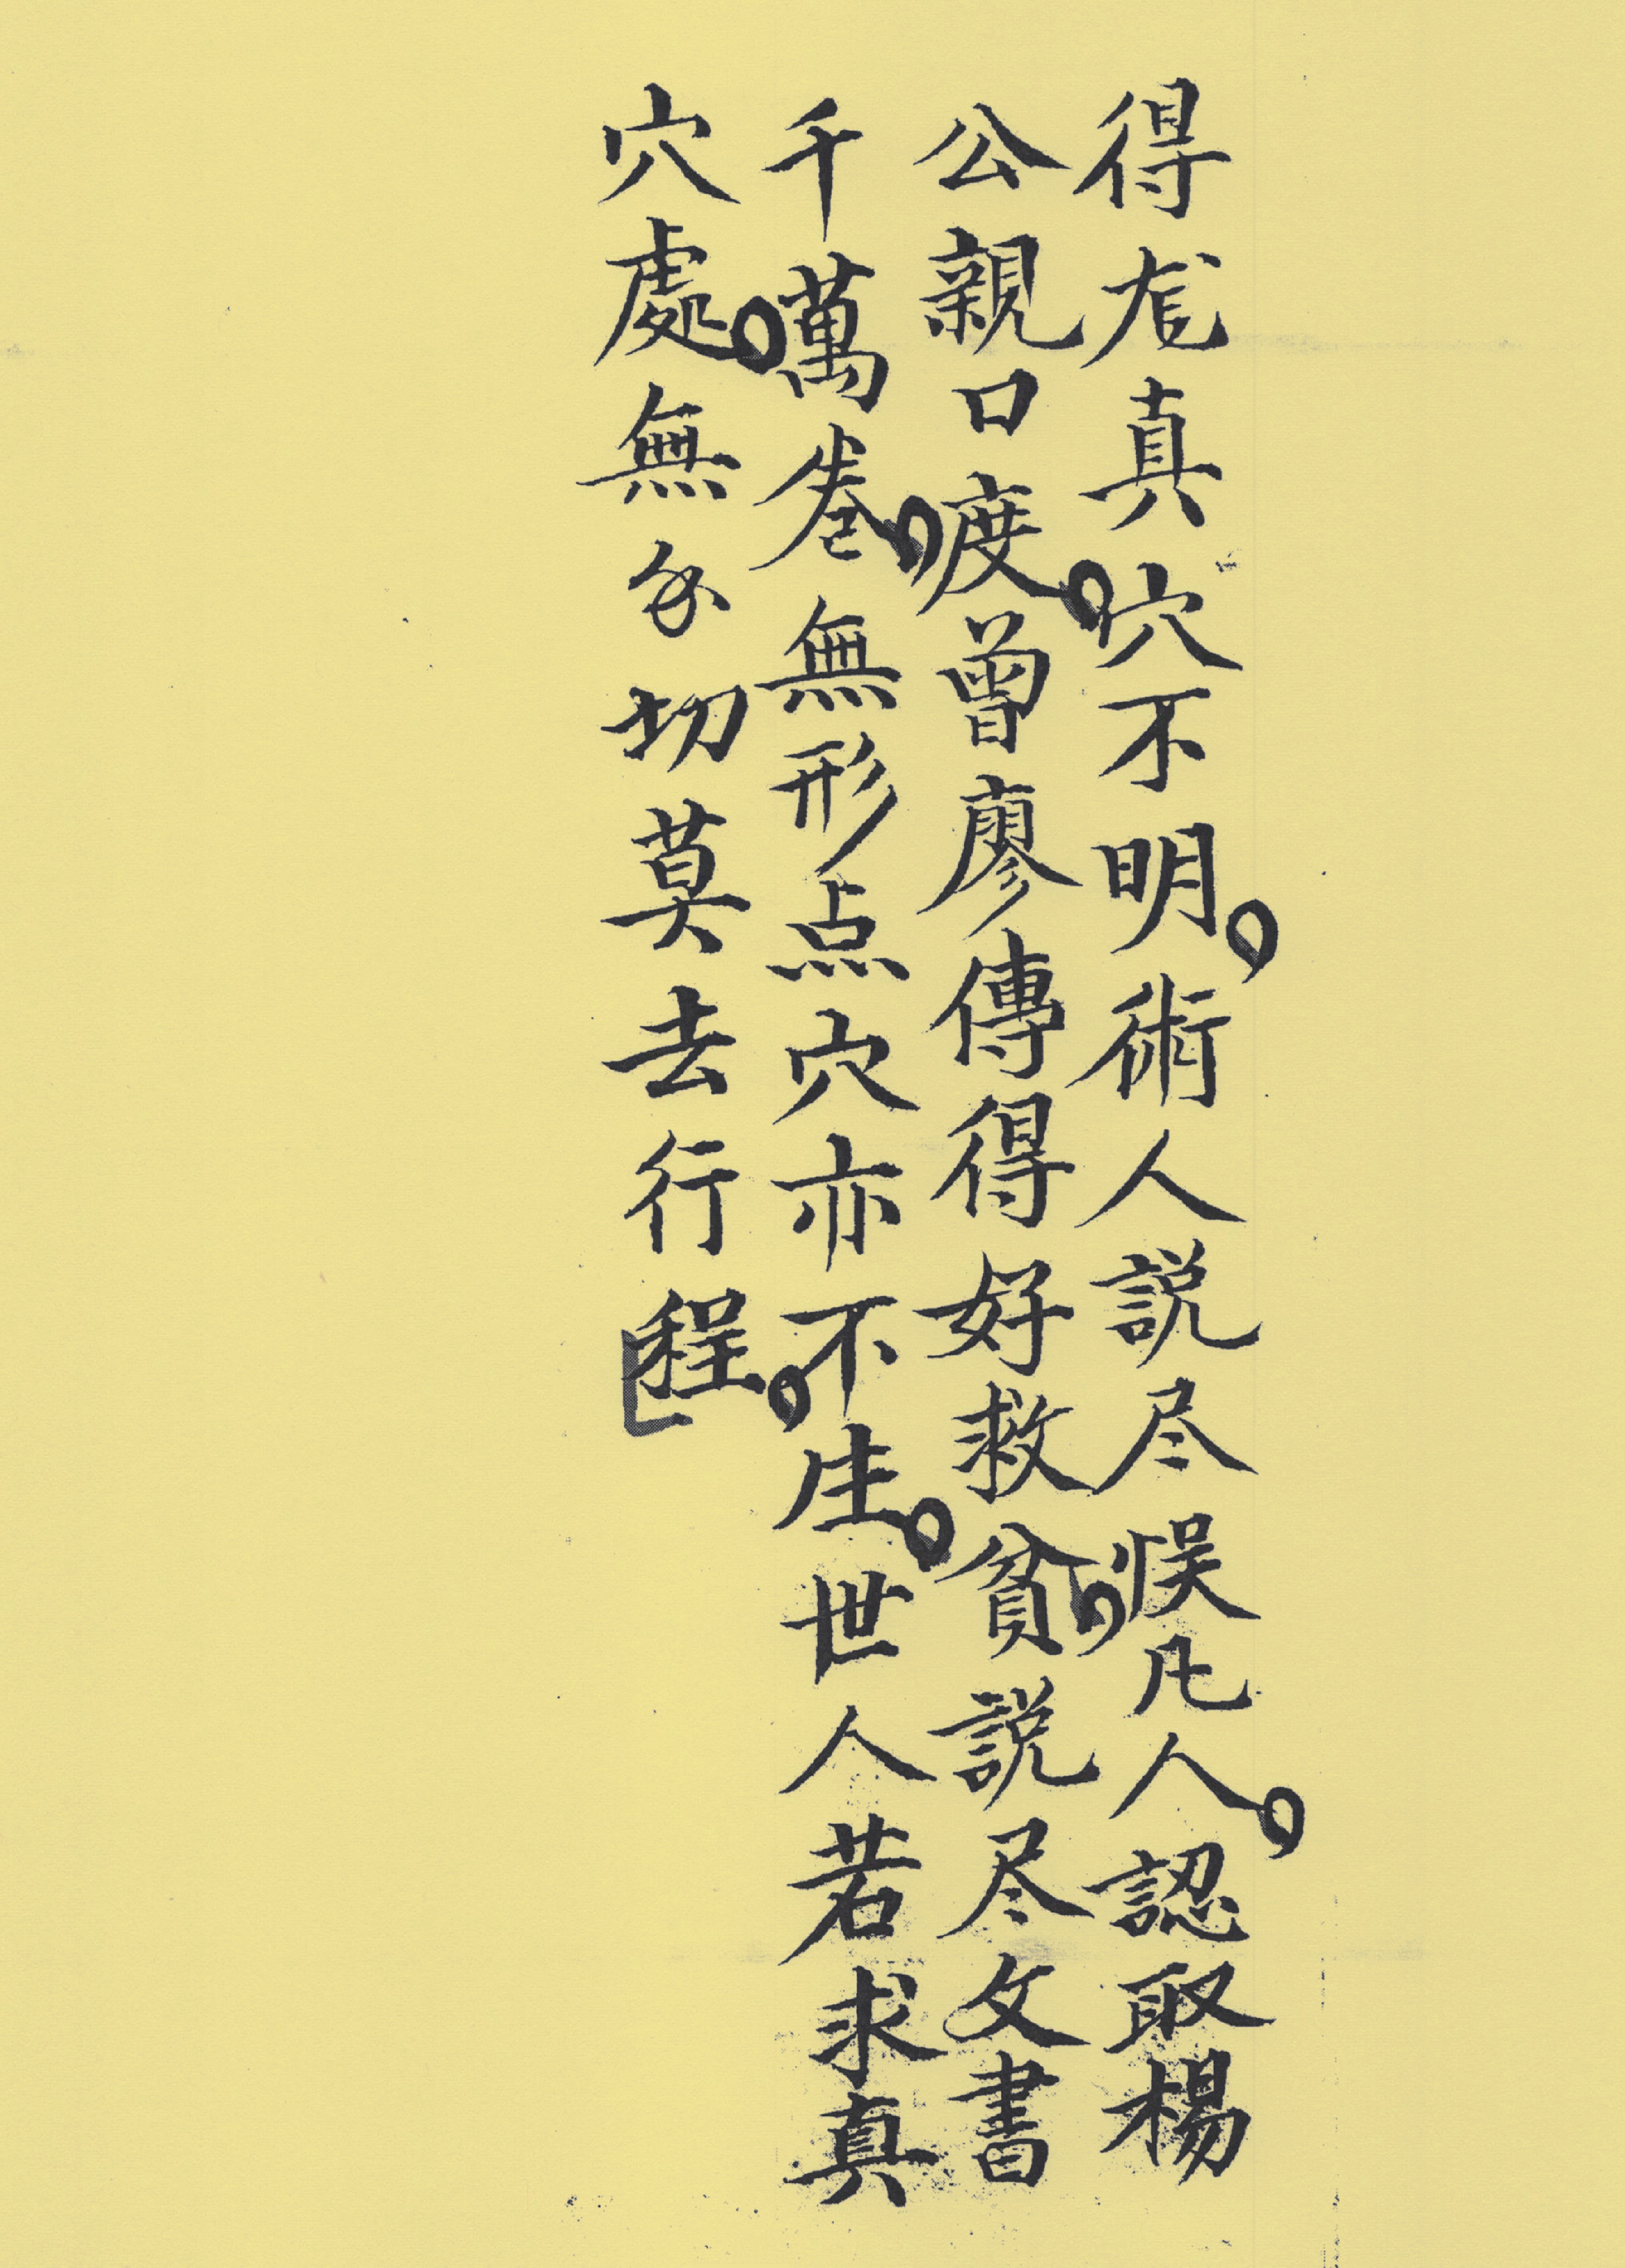 得龙真穴不明。術人説尽悮凡人。認取楊
公親口度。曾廖傳得好救貧。説尽文書
千萬卷。無形点穴亦不生。世人若求真
穴處。無切莫去行程。